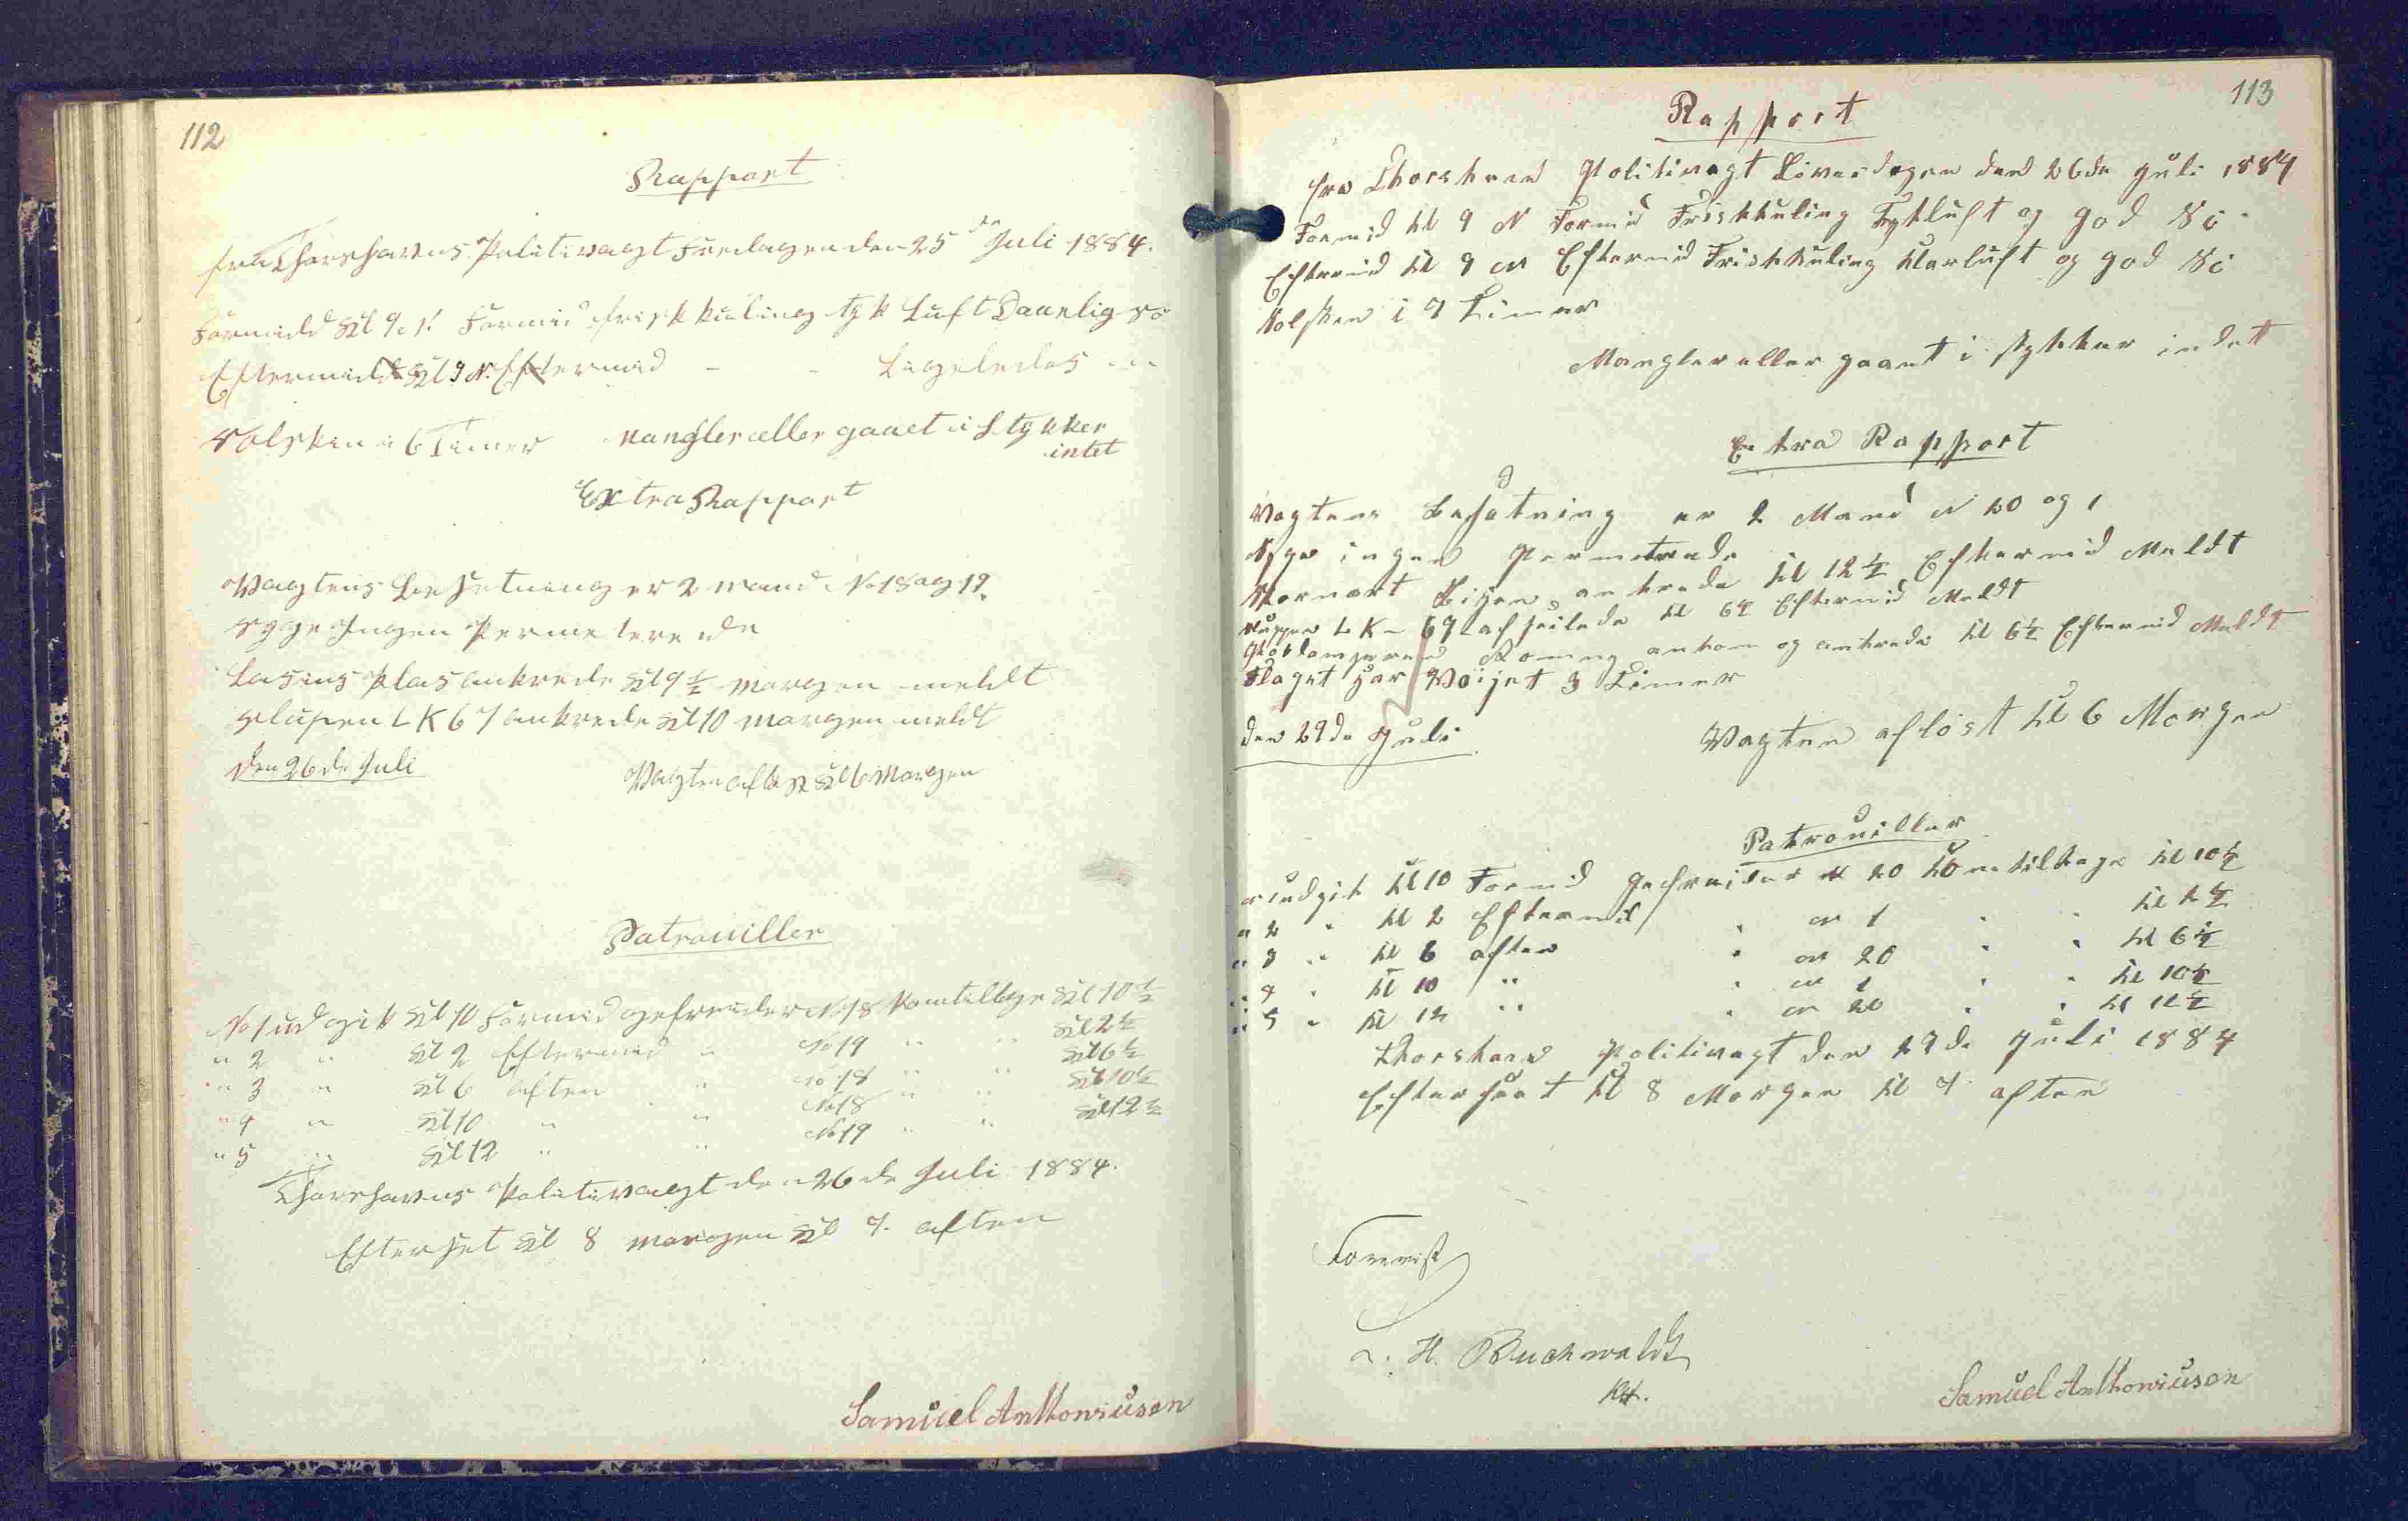 112
Rapport
fra Thorshavns Politivagt Fredagen den 25de Juli 1884.
Formidd Kl 9. Formid frisk kuling tyk Luft Daarlig Sö
Eftermidd Kl 9 N. Eftermid - - Ligeledes "
Solskin i 6 Timer Mangler eller gaaet i Stykker
intet
Extra Rapport
Vagtens Besetning er 2 mand No 18 og 19.
Syge Ingen Permeterede
ankrede Kl 9½ morgen meldt
Slupen L K 67 ankrede Kl 10 morgen meldt
den 26de Juli
Vagten aflöst Kl 6 Morgen
Patrouiller
No 1 udgik Kl 10 Formid gefreider No 18 Kom tilbage Kl 10½
" 2 " Kl 2 Eftermid " No 19 " " Kl 2½
" 3 " Kl 6 aften " No 18 " " Kl 6½
" 4 " Kl 10 " " No 18 " " Kl 10½
" 5 " Kl 12 " " No 19 " " Kl 12½
Thorshavns Politivagt den 26de Juli 1884.
Efterset Kl 8 morgen Kl 7. aften
Samuel Anthoniusen
113
Rapport
fra Thorshavn Politivagt Löverdagen den 26de Juli 1884
Formid Kl 9 N Formid Friskkuling Tykluft og god Sö
Eftermid Kl 9 N Eftermid Friskkuling Klarluft og god Sö
Solsken i 7 Timer
Mangler eller gaaet i stykker indet
Extra Rapport
Vagtens Besatning er 2 Mand N 20 og 1
Syge ingen Permeterede
ankrede Kl 12½ Eftermid Meldt
Sluppen L K - 67 afseilede Kl 6½ Eftermid Meldt
Romny ankom og ankrede Kl 6½ Eftermid Meldt
Flaget har Vöijet 3 Timer
den 27de Juli
Vagten aflöst Kl 6 Morgen
Patrouiller
udgik Kl 10 Formid Gefreider N 20 Kom tilbage Kl 10½
" 2 " Kl 2 Eftermid " N 1 " " Kl 2½
" 3 " Kl 6 aften " N 20 " " Kl 6½
" 4 " Kl 10 " " N 1 " " Kl 10½
" 5 " Kl 12 " " N 20 " " Kl 12½
Thorshavn Politivagt den 27de Juli 1884
Eftersaat Kl 8 Morgen Kl 7 aften
Forevist
H. Buchwaldt
Samuel Anthoniusen